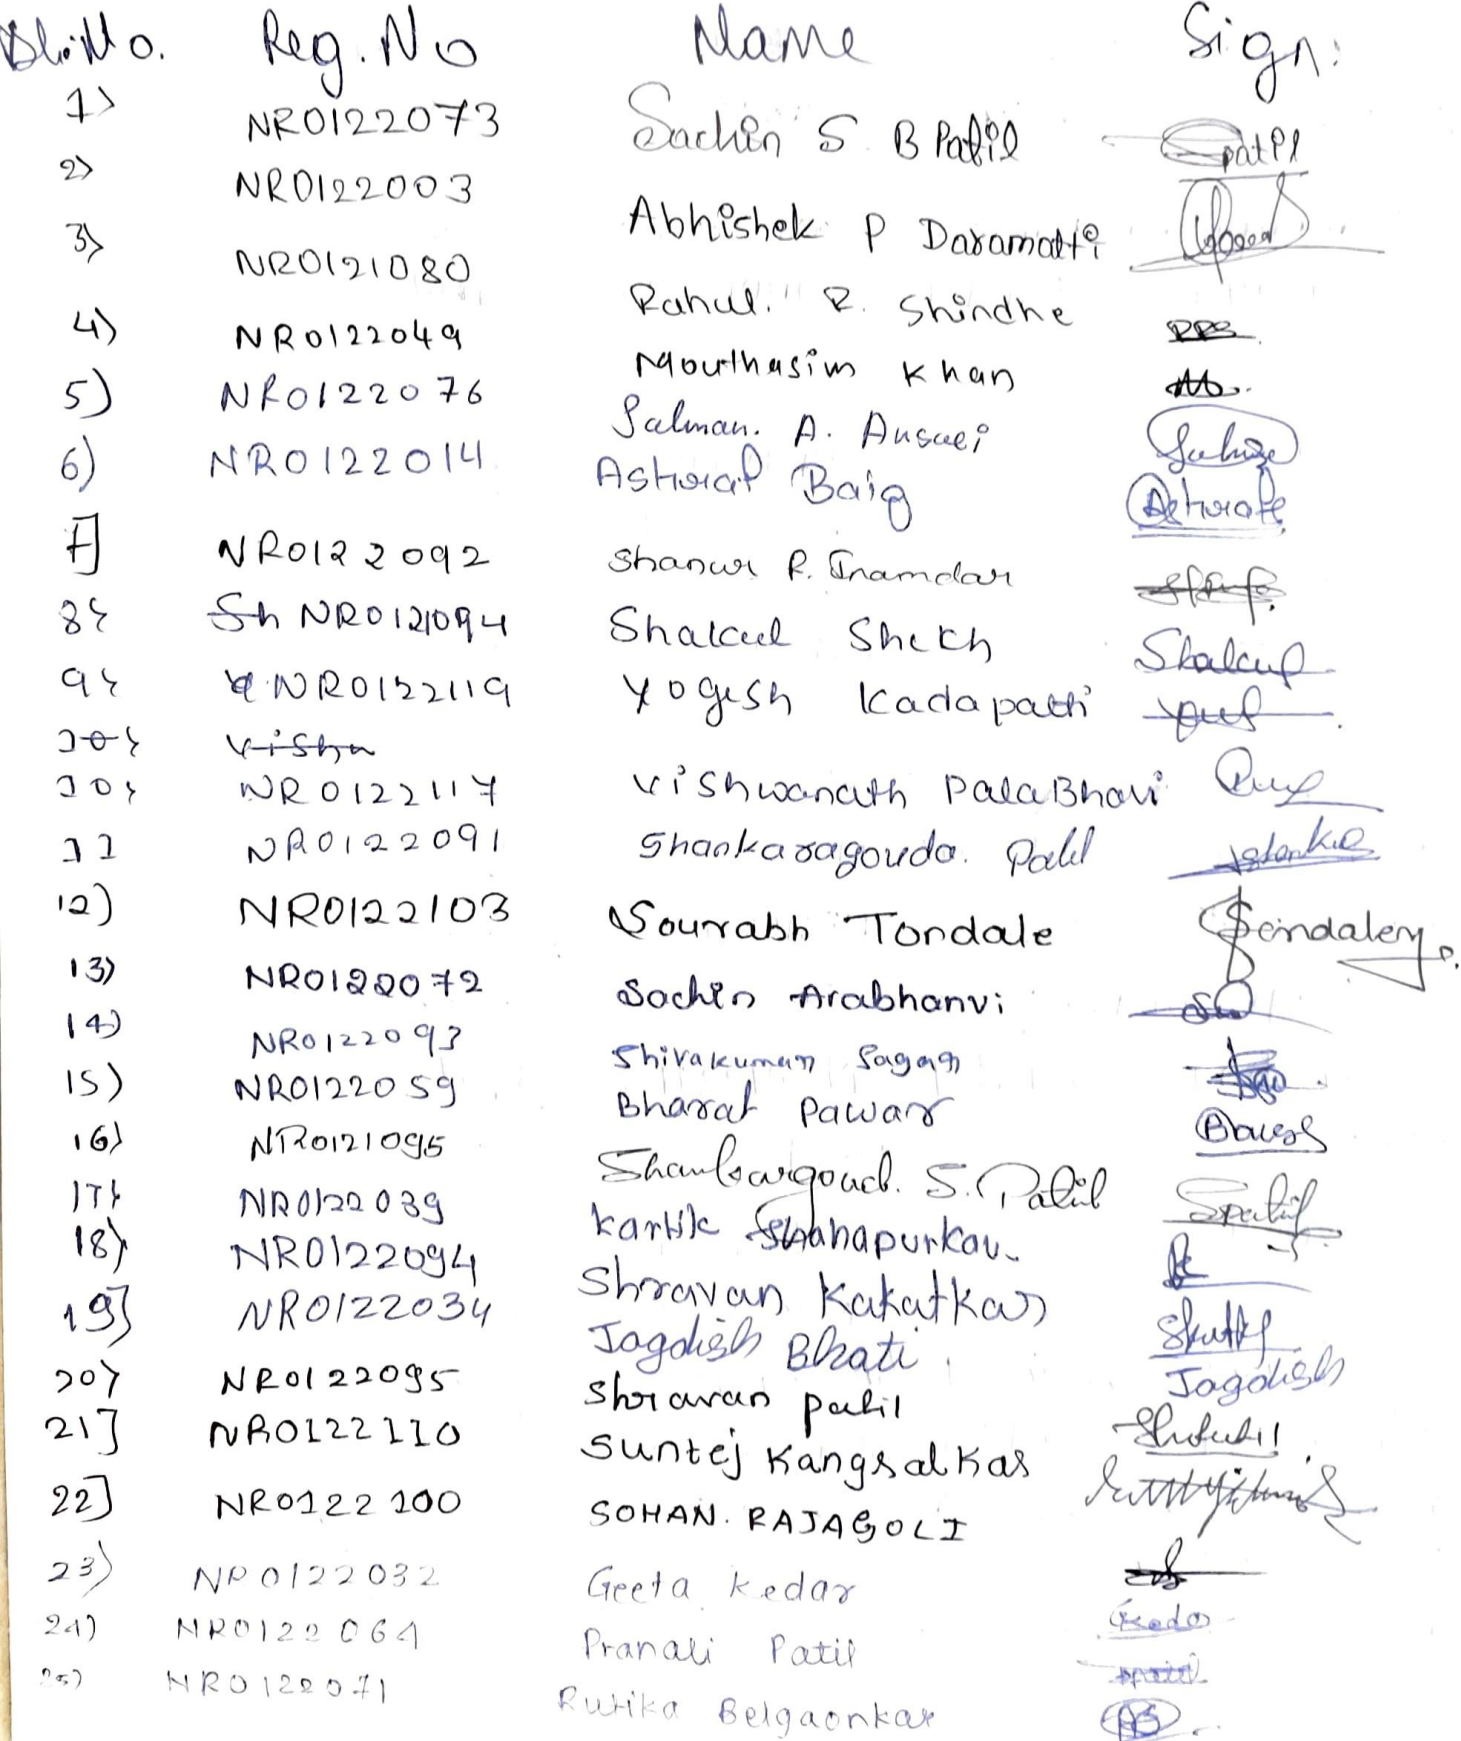 Sl.No. Reg.No Name Sign:
1) NR0122073 Sachin S B Patil Spatil
2) NR0122003 Abhishek P Daramatti
3) NR0121080 Rahul. R. Shindhe RRS
4) NR0122049 Mouthasim Khan
5) NR0122076 Salman. A. Ansari
6) NR0122014 Ashraf Baig Ashrafe
7] NR0122092 Shanur R. Inamdar
8} Sh NR0121094 Shakeel Shekh
9} NR0122119 Yogesh Kadapatti
10} Vishw
10} NR0122117 Vishwanath PalaBhavi
11 NR0122091 Shankaragouda. Patil
12) NR0122103 Sourabh Tondale
13) NR0122072 Sachin Arabhanvi
14) NR0122093 Shivakumar Sagar
15) NR0122059 Bharat Pawar
16) NR0121095 Shankargoud. S. Patil Spatil
17} NR0122039 Kartik Shahapurkar
18} NR0122094 Shravan Kakatkar
19] NR0122034 Jagdish Bhati Jagdish
20} NR0122095 Shravan patil
21] NR0122110 Suntej Kangralkar
22] NR0122100 SOHAN. RAJAGOLI
23) NR0122032 Geeta Kedar
24) NR0122064 Pranali Patil
25) NR0122071 Rutika Belgaonkar